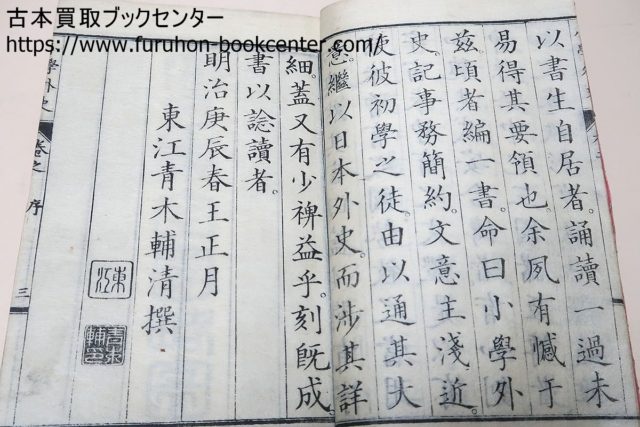 古本買取ブックセンター
https://www.furuhon-bookcenter.com/
以書生自居者。誦讀一過未
易得其要領也。余夙有憾于
茲頃者編一書。命曰小學外
史。記事務簡約。文意主淺近。
使彼初學之徒。由以通其大
意。繼以日本外史。而渉其詳
細。蓋又有少裨益乎。刻既成。
書以諗讀者。
明治庚辰春王正月
東江青木輔清撰
東江
青木輔清
學外史
序
三